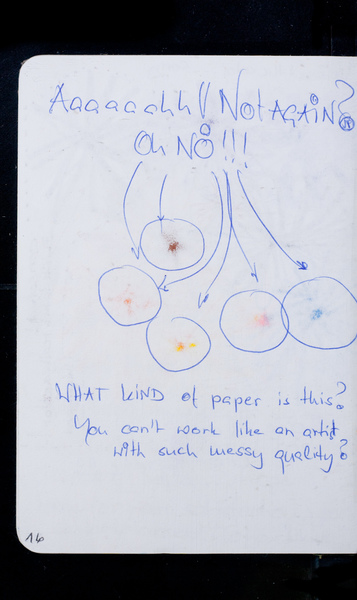 Aaaaaahh!! Not AGAiN?
Oh NO!!!
WHAT KiND of paper is this?
You can't work like an artist
with such messy quality?
16